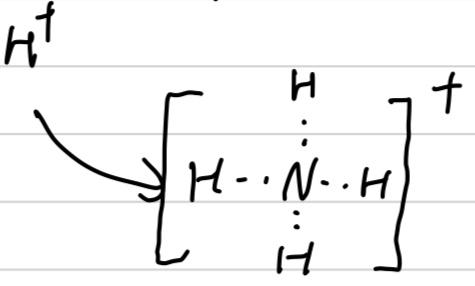 H⁺
H
+
H··N··H
H